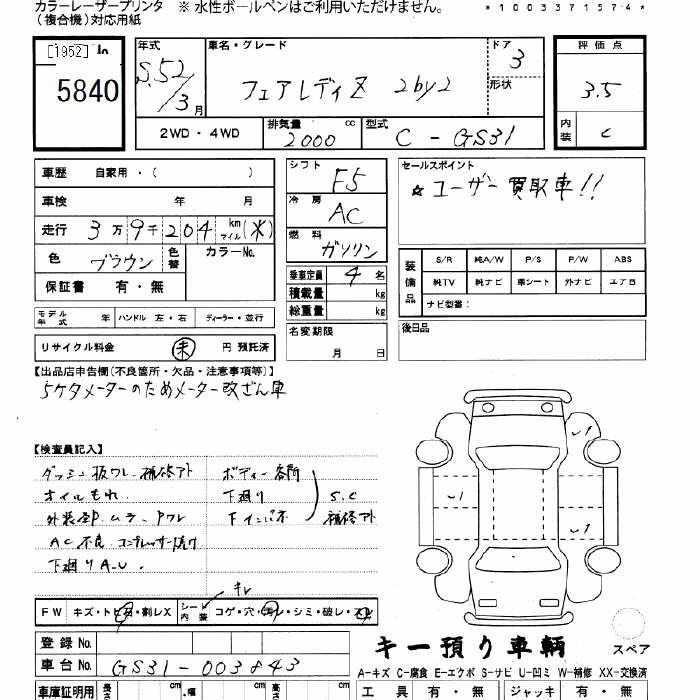 カラーレーザープリンタ ※ 水性ボールペンはご利用いただけません。 *1003371574*
(複合機)対応用紙
[1952]
5840
年式 S.52/3月
車名・グレード フェアレディZ 2by2
ドア 3
形状
評価点 3.5
内装 C
2WD・4WD
排気量 2000 cc
型式 C-GS31
車歴 自家用・( )
車検 年 月
走行 3万9千204 km マイル (*)
色 ブラウン 色替 カラーNo.
保証書 有・無
シフト F5
冷房 AC
燃料 ガソリン
乗車定員 4名
積載量 kg
総重量 kg
名変期限
月 日
セールスポイント
☆ユーザー買取車!!
装備品
S/R 純A/W P/S P/W ABS
純TV 純ナビ 革シート 外ナビ エアB
ナビ型番:
後日品
モデル年式 年 ハンドル 左・右 ディーラー・並行
リサイクル料金 未 円 預託済
【出品店申告欄(不良箇所・欠品・注意事項等)】
5ケタメーターのためメーター改ざん車
【検査員記入】
ダッシュ板ワレ 補修アト
オイルもれ
AC不良
下廻りA.U.
ボディー各所
下廻り
S.C
補修アト
キレ
FW キズ・トビ石・割レX シート 内装 コゲ・穴・汚レ・シミ・破レ・スレ
登録No.
車台No. GS31-003843
車庫証明用 長さ cm 幅 cm 高さ cm
キー預り車輌
スペア
A-キズ C-腐食 E-エクボ S-サビ U-凹ミ W-補修 XX-交換済
工具 有・無 ジャッキ 有・無